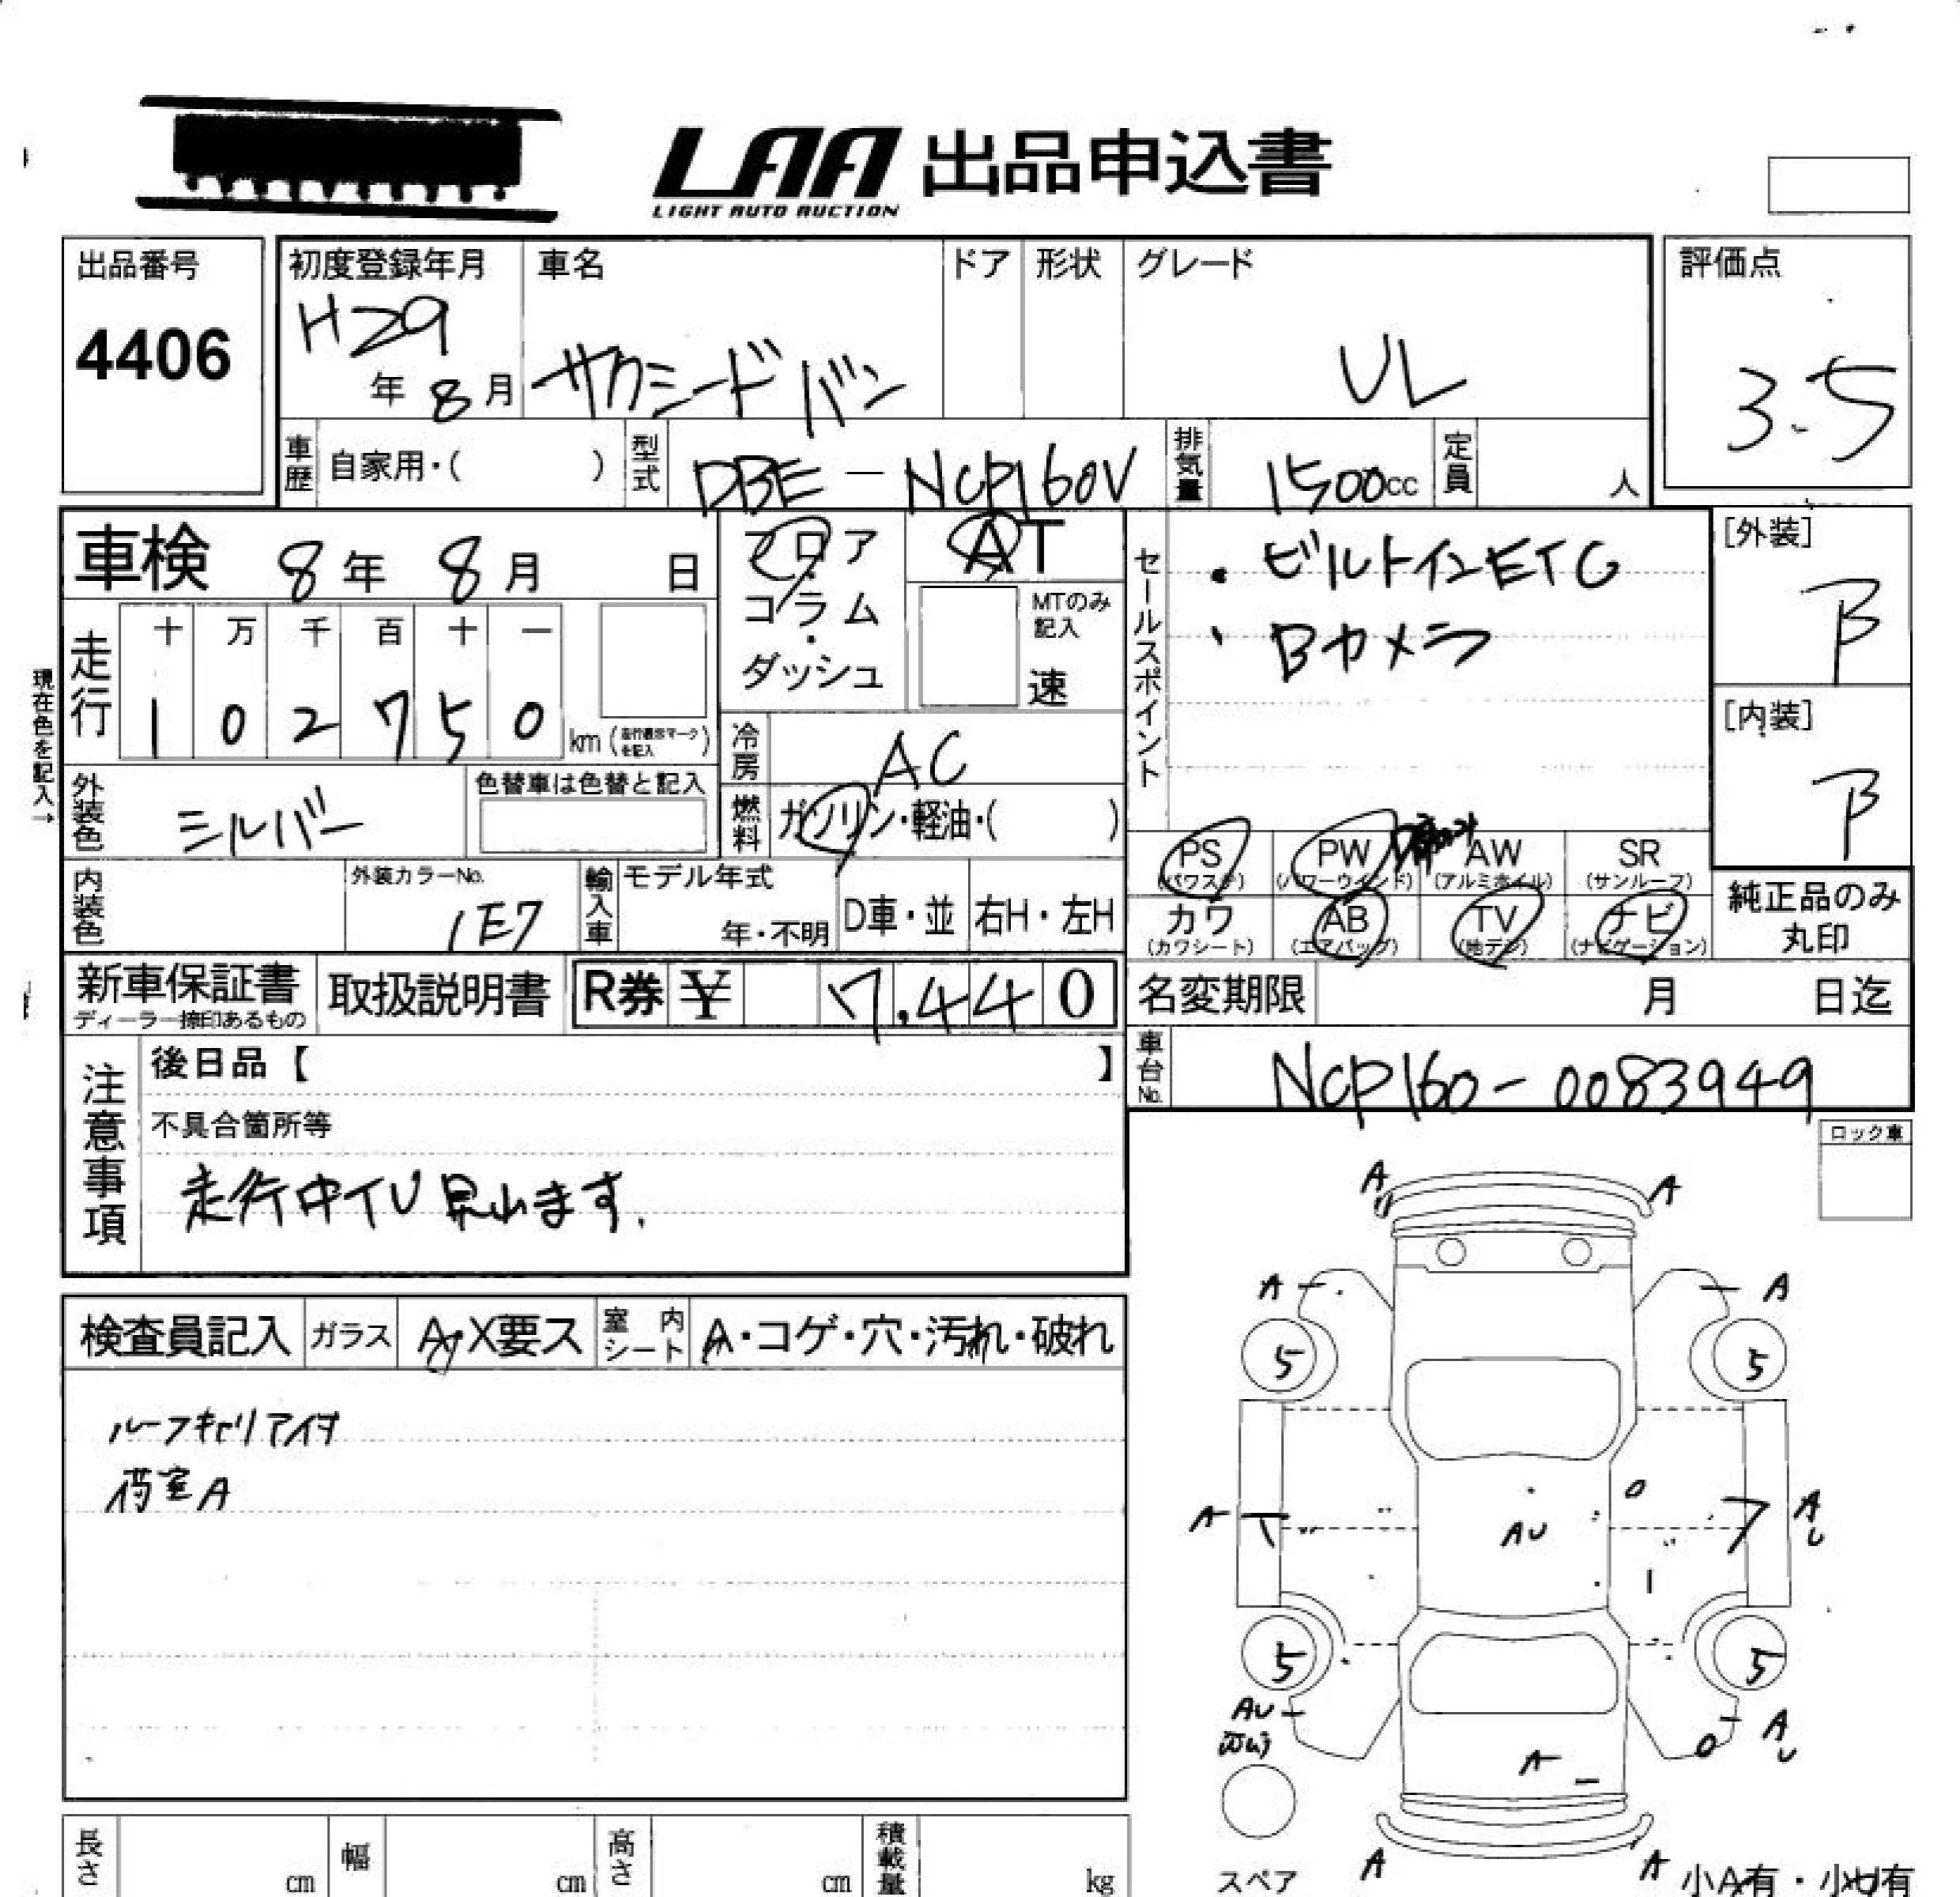 LAA 出品申込書
LIGHT AUTO AUCTION
出品番号
4406
初度登録年月
H29
年 8 月
車名
サクシードバン
ドア
形状
グレード
UL
評価点
3.5
車歴 自家用・( )
型式 DBE-NCP160V
排気量 1500cc
定員 人
車検 8年 8月 日
フロア・コラム・ダッシュ
AT
MTのみ記入
速
セールスポイント
・ビルトインETC
・Bカメラ
[外装]
B
[内装]
B
現在色を記入→
走行
十 万 千 百 十 一
1 0 2 7 5 0 km (走行表示マークを記入)
冷房 AC
外装色 シルバー
色替車は色替と記入
燃料 ガソリン・軽油・( )
PS (パワステ)
PW (パワーウインド)
AW (アルミホイル)
SR (サンルーフ)
カワ (カワシート)
AB (エアバッグ)
TV (地デジ)
ナビ (ナビゲーション)
純正品のみ丸印
内装色
外装カラーNo.
1E7
輸入車
モデル年式
年・不明
D車・並
右H・左H
新車保証書
ディーラー捺印あるもの
取扱説明書
R券 ¥ 7,440
名変期限 月 日迄
車台No. NCP160-0083949
注意事項
後日品【 】
不具合箇所等
走行中TV見れます.
ロック車
検査員記入
ガラス A・X要ス
室内シート A・コゲ・穴・汚れ・破れ
ルーフキャリア付
荷室A
A A
A A
5 5
A AU AU
5 5
AU AU
A
A A
スペア
小A有・小U有
長さ cm
幅 cm
高さ cm
積載量 kg